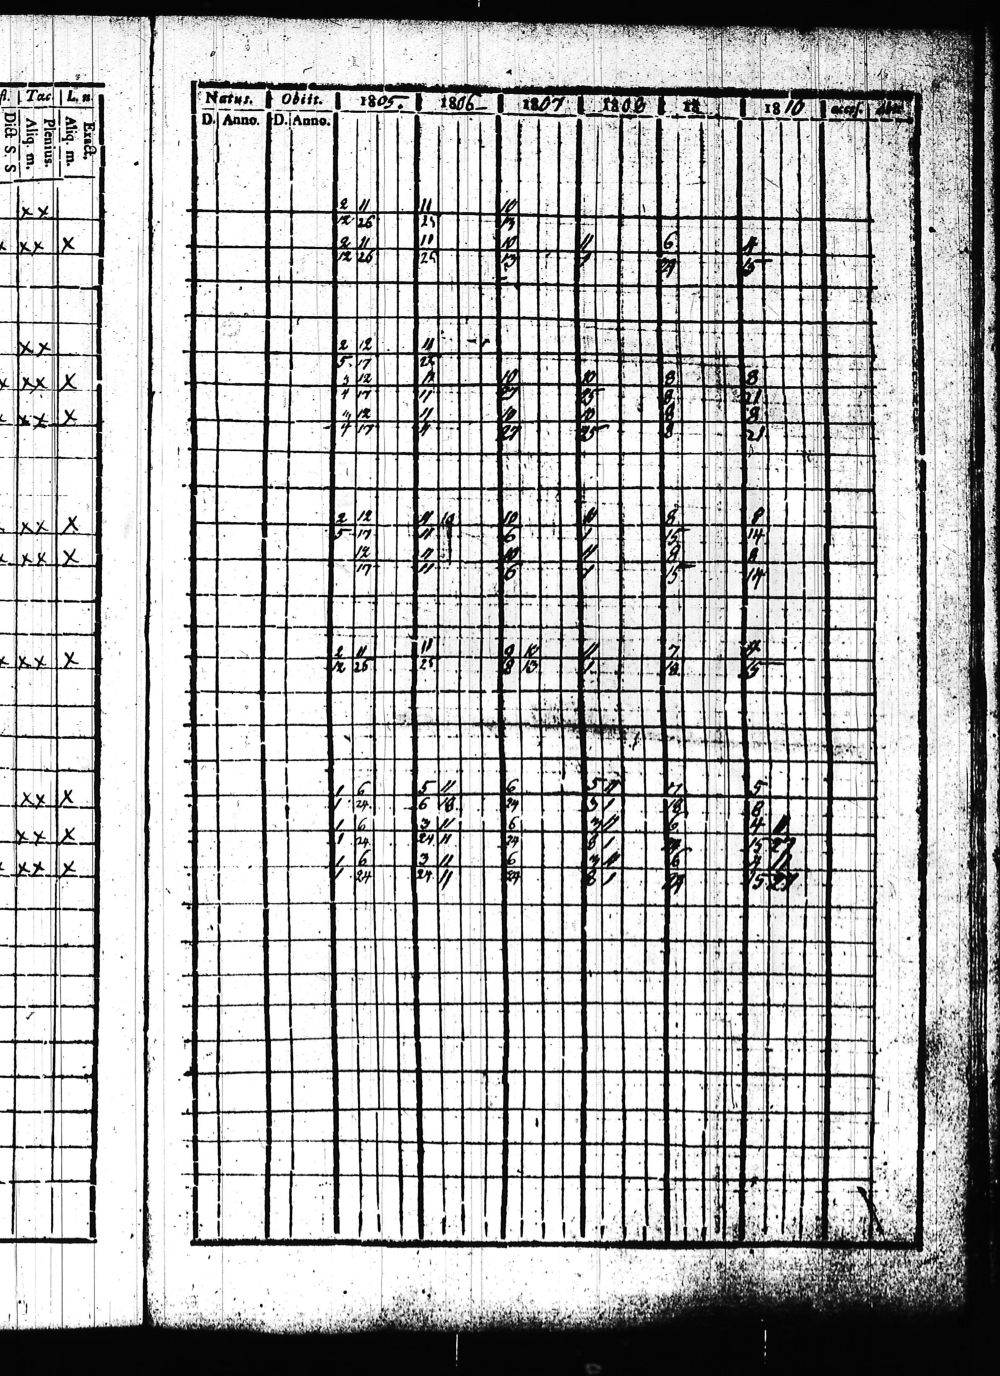 Tac. L. n.
Did S. S Plenius. Aliq. m. Exact. Aliq. m.
Natus. Obiit. 1805. 1806 1807 1808 18 1810 accef.
D. Anno. D. Anno.
x x
2 11 11 10
12 26 25 13
x x x 2 11 11 10 11 6 4
12 26 25 13 1 29 15
x x
2 12 11
5 17 25
x x x 3 12 11 10 10 8 8
4 17 11 27 25 8 21
x x x 3 12 11 10 10 8 8
4 17 11 27 25 8 21
x x x 2 12 11 10 10 11 8 8
5 17 11 6 1 15 14
x x x 12 11 10 11 8 8
17 11 6 1 15 14
x x x 2 11 11 9 10 11 7 4
12 26 25 8 13 1 18 15
x x x 1 6 5 11 6 5 11 7 5
1 24 6 18 24 5 1 18 8
x x x 1 6 3 11 6 3 11 6 4 11
1 24 24 11 24 8 1 29 15 27
x x x 1 6 3 11 6 3 11 6 4 11
1 24 24 11 24 8 1 29 15 27